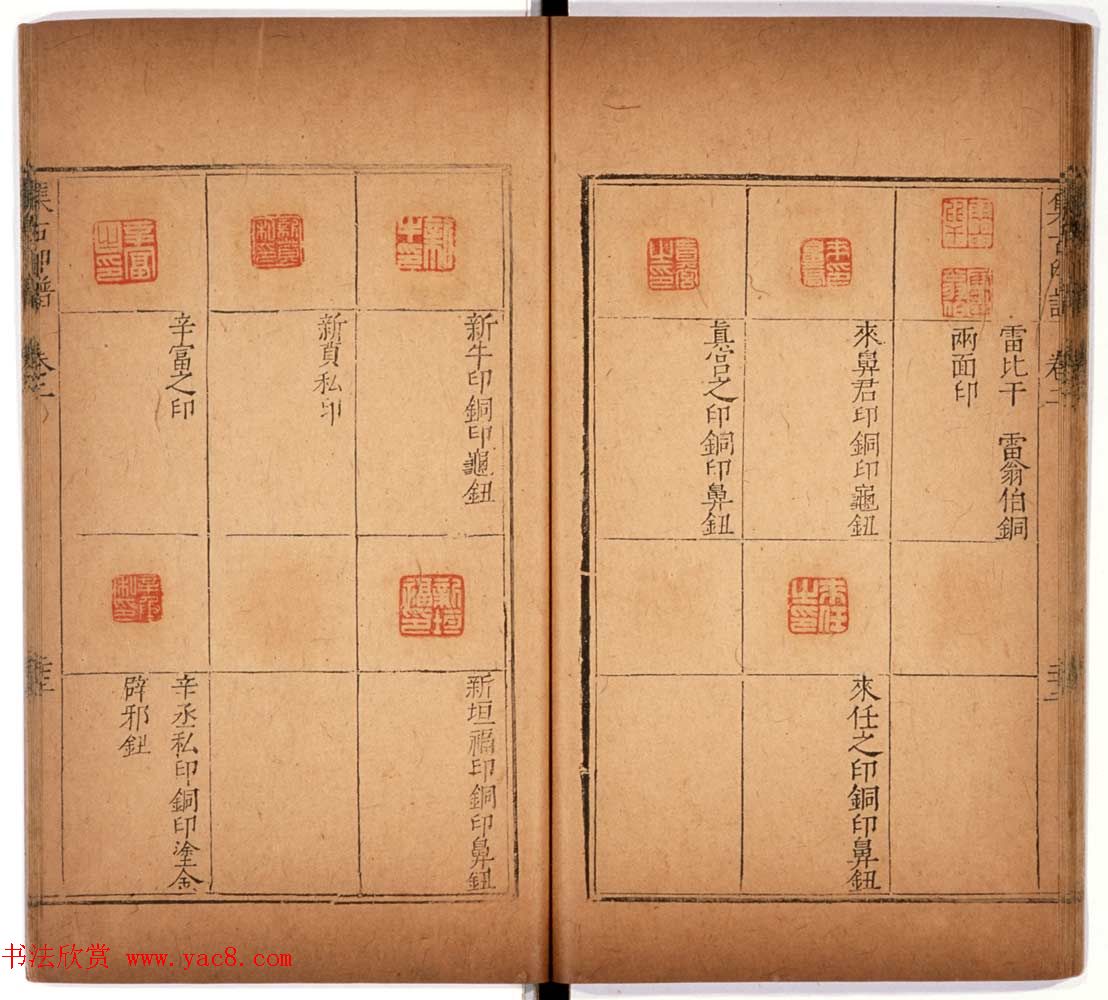 集古印譜 卷二
雷比干 雷翁伯銅
兩面印
來鼻君印銅印龜鈕
來任之印銅印鼻鈕
真宮之印銅印鼻鈕
新牛印銅印龜鈕
新垣福印銅印鼻鈕
新莫私印
辛富之印
辛丞私印銅印塗金
辟邪鈕
集古印譜
书法欣赏 www.yac8.com